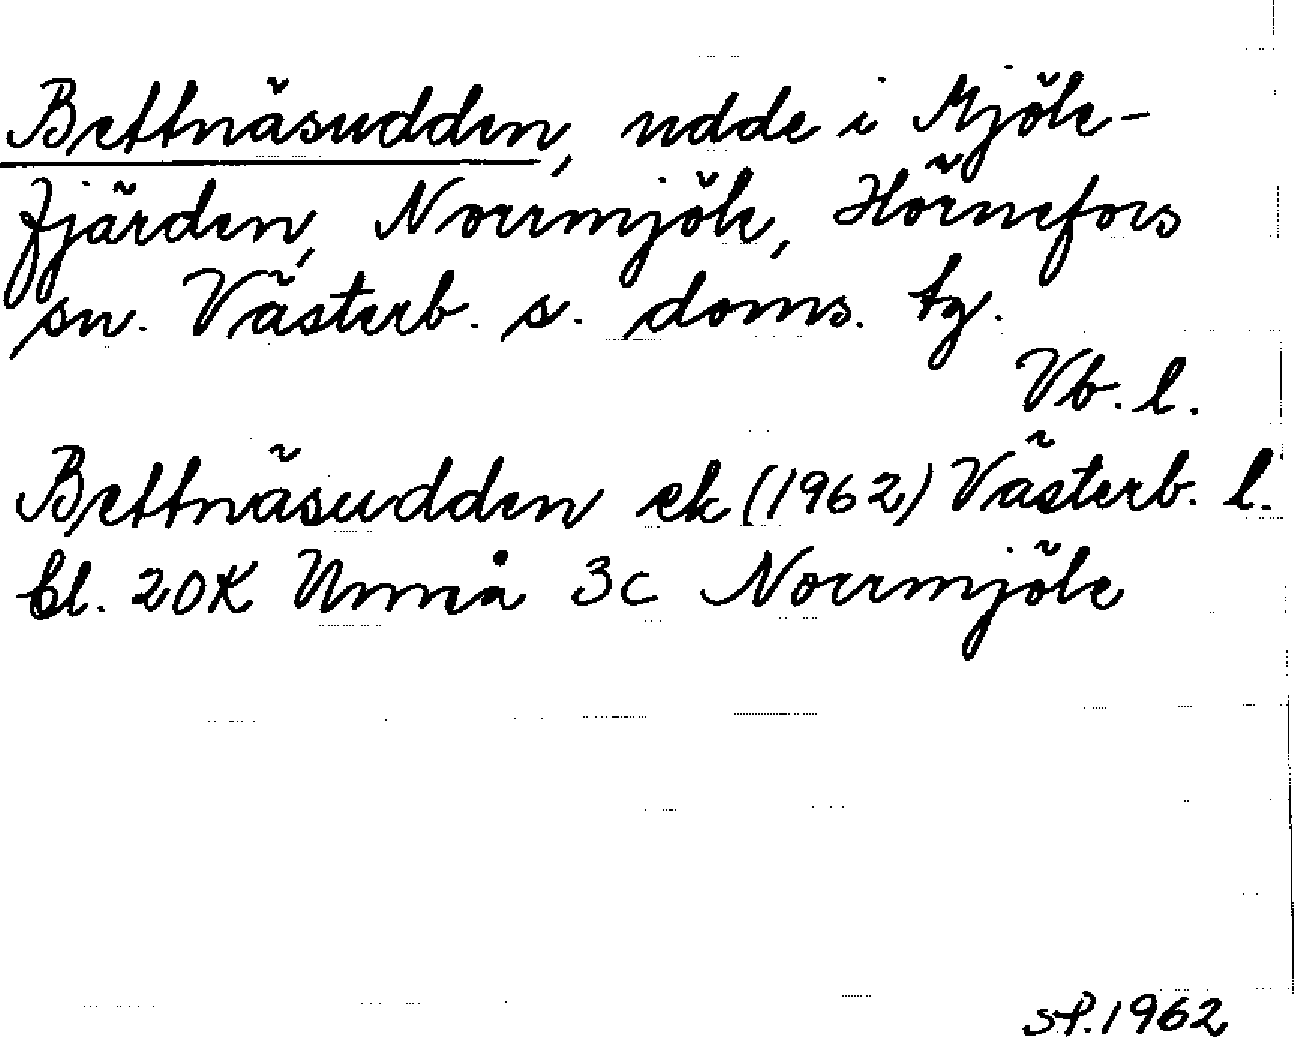 Bettnäsudden, udde i Mjöle-
fjärden, Norrmjöle, Hörnefors
sn. Västerb. s. doms. tg.
Vb. l.
Bettnäsudden ek (1962) Västerb. l.
bl. 20K Umeå 3c Norrmjöle
sp. 1962